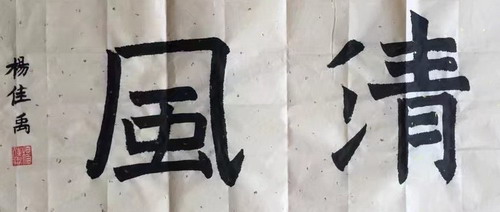 清風
楊佳禹